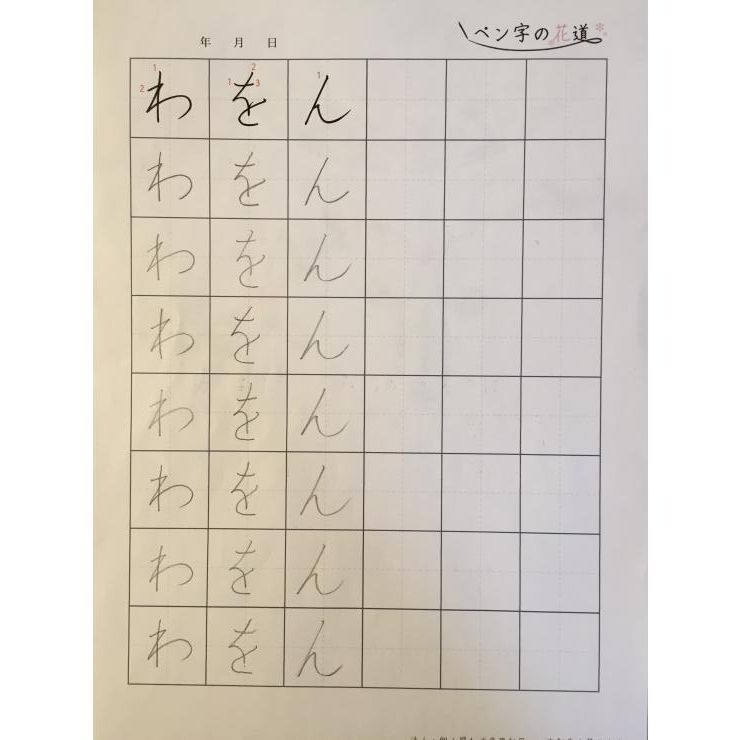 年 月 日 ペン字の花道
1 2 わ 1 2 3 を 1 ん
わ を ん
わ を ん
わ を ん
わ を ん
わ を ん
わ を ん
わ を ん